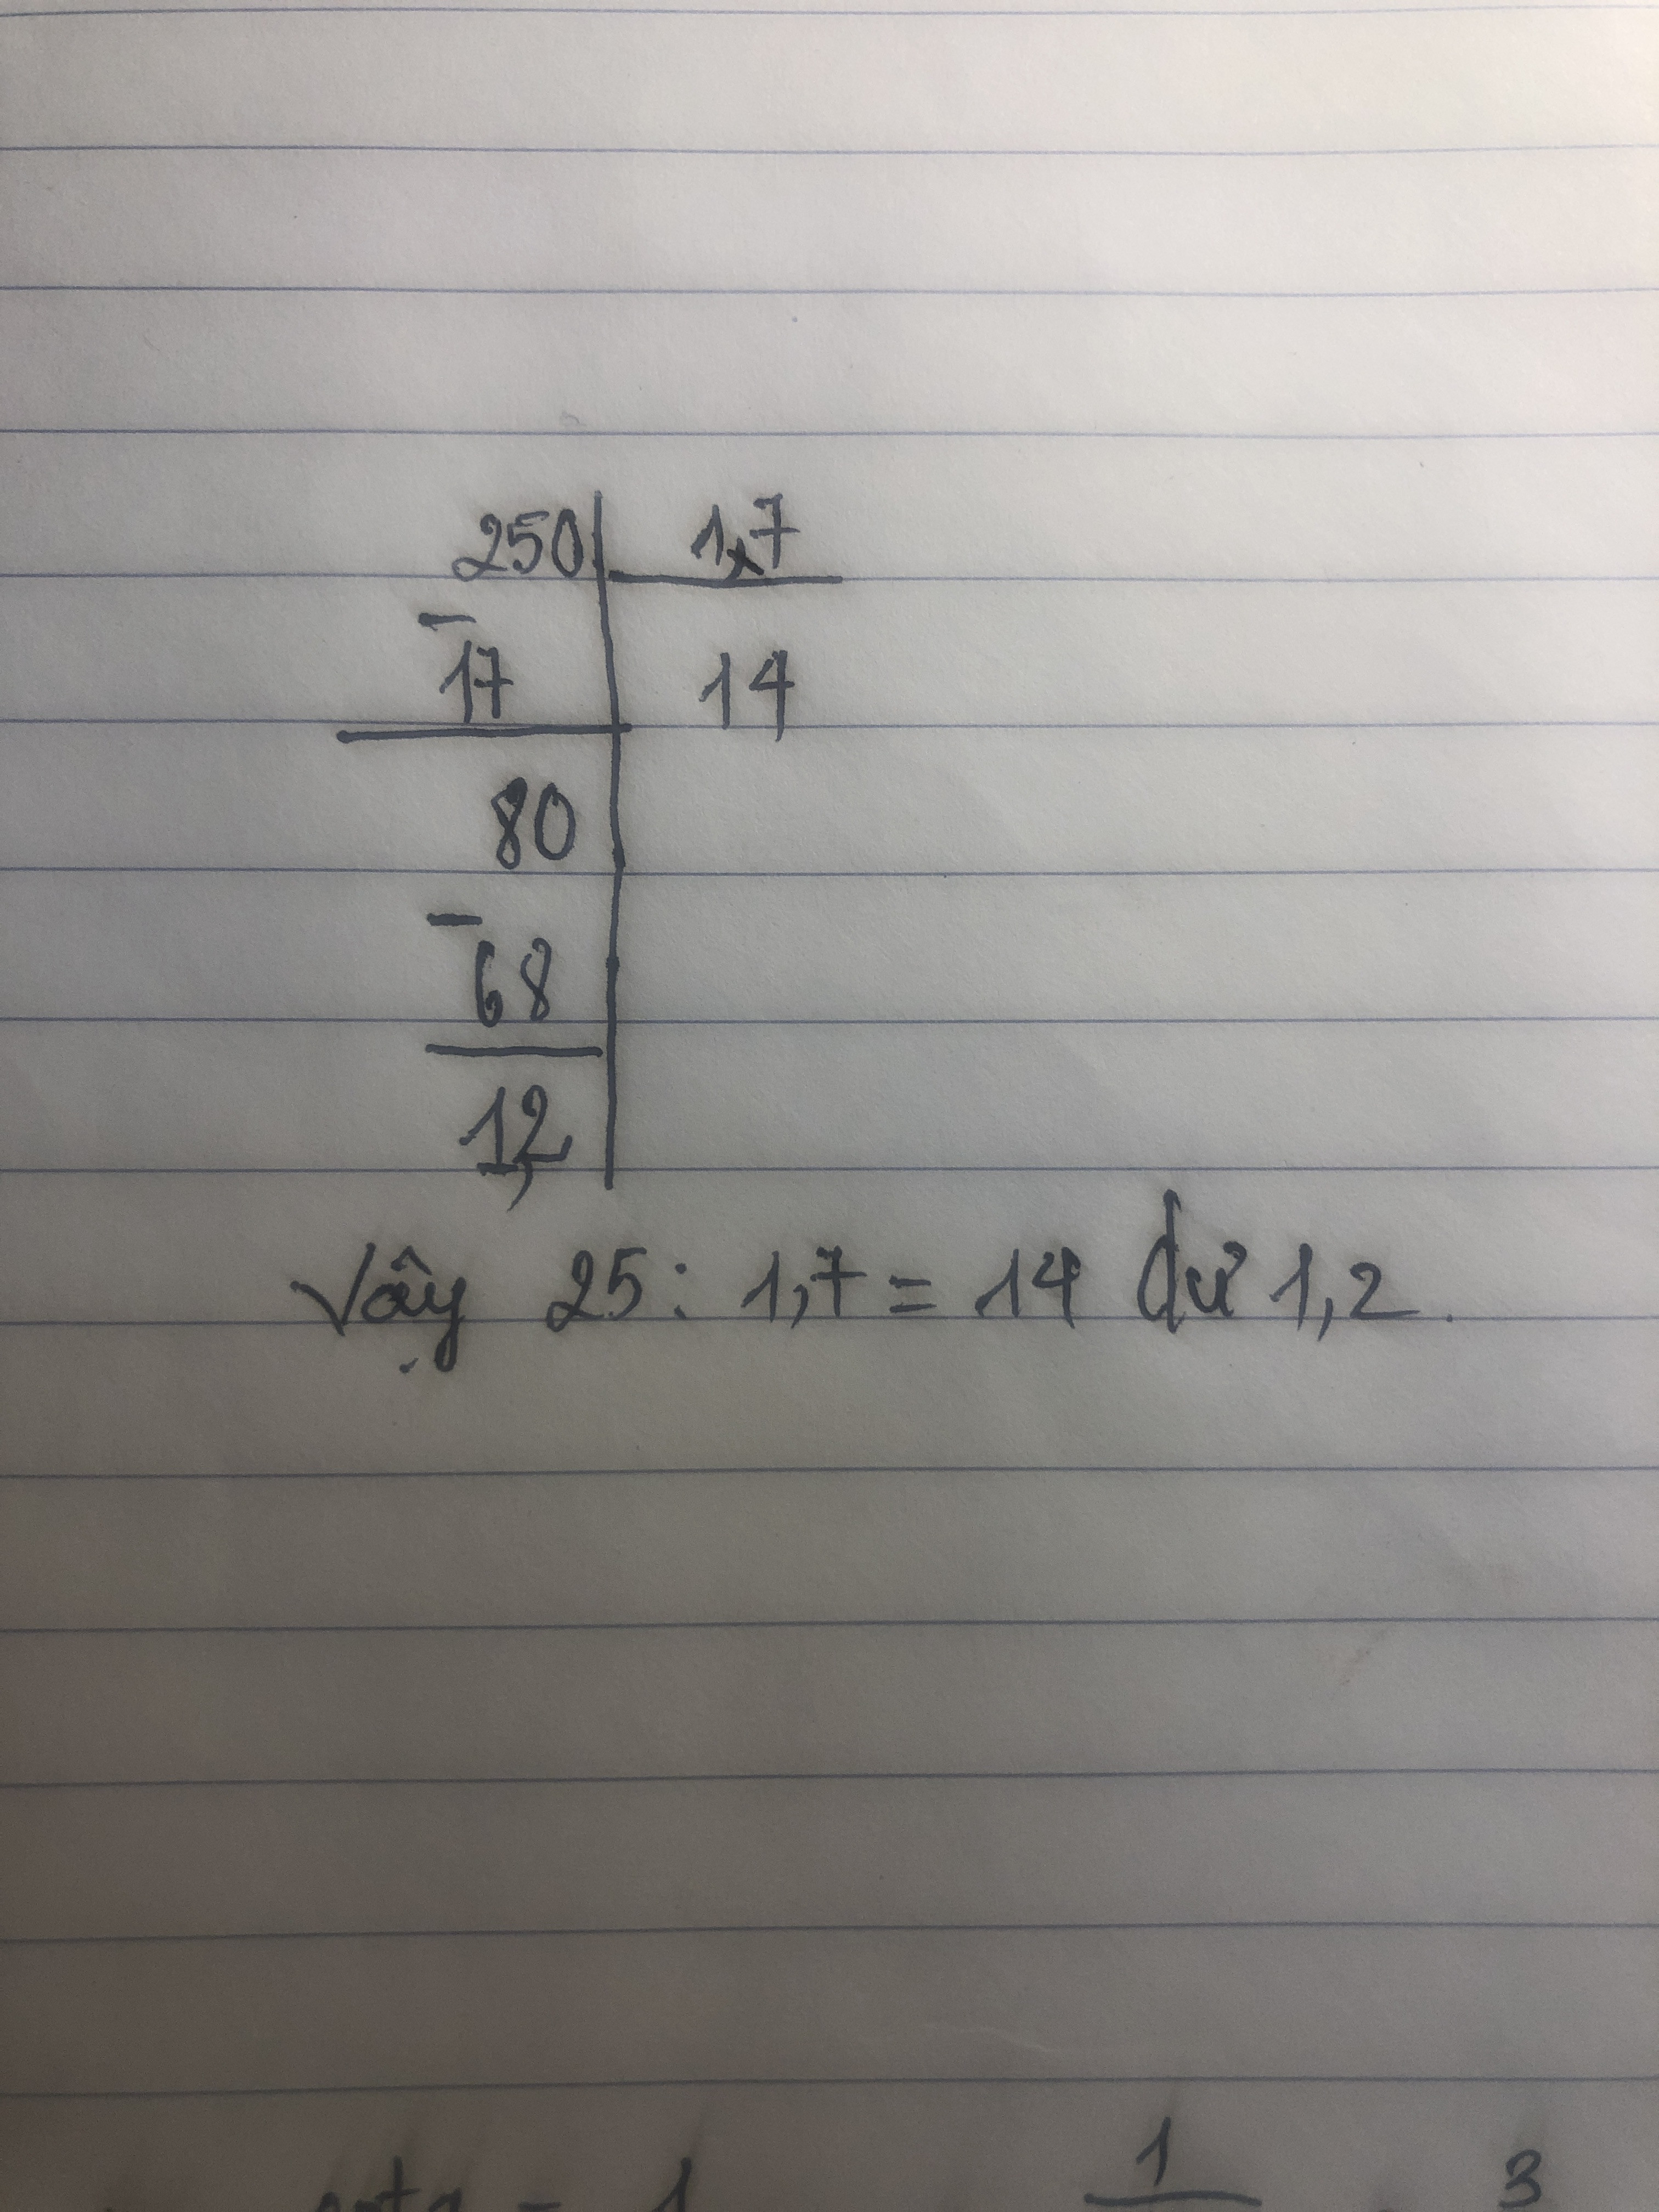 250 1,7
- 17 14
80
- 68
1,2
Vậy 25: 1,7 = 14 dư 1,2.
1 3